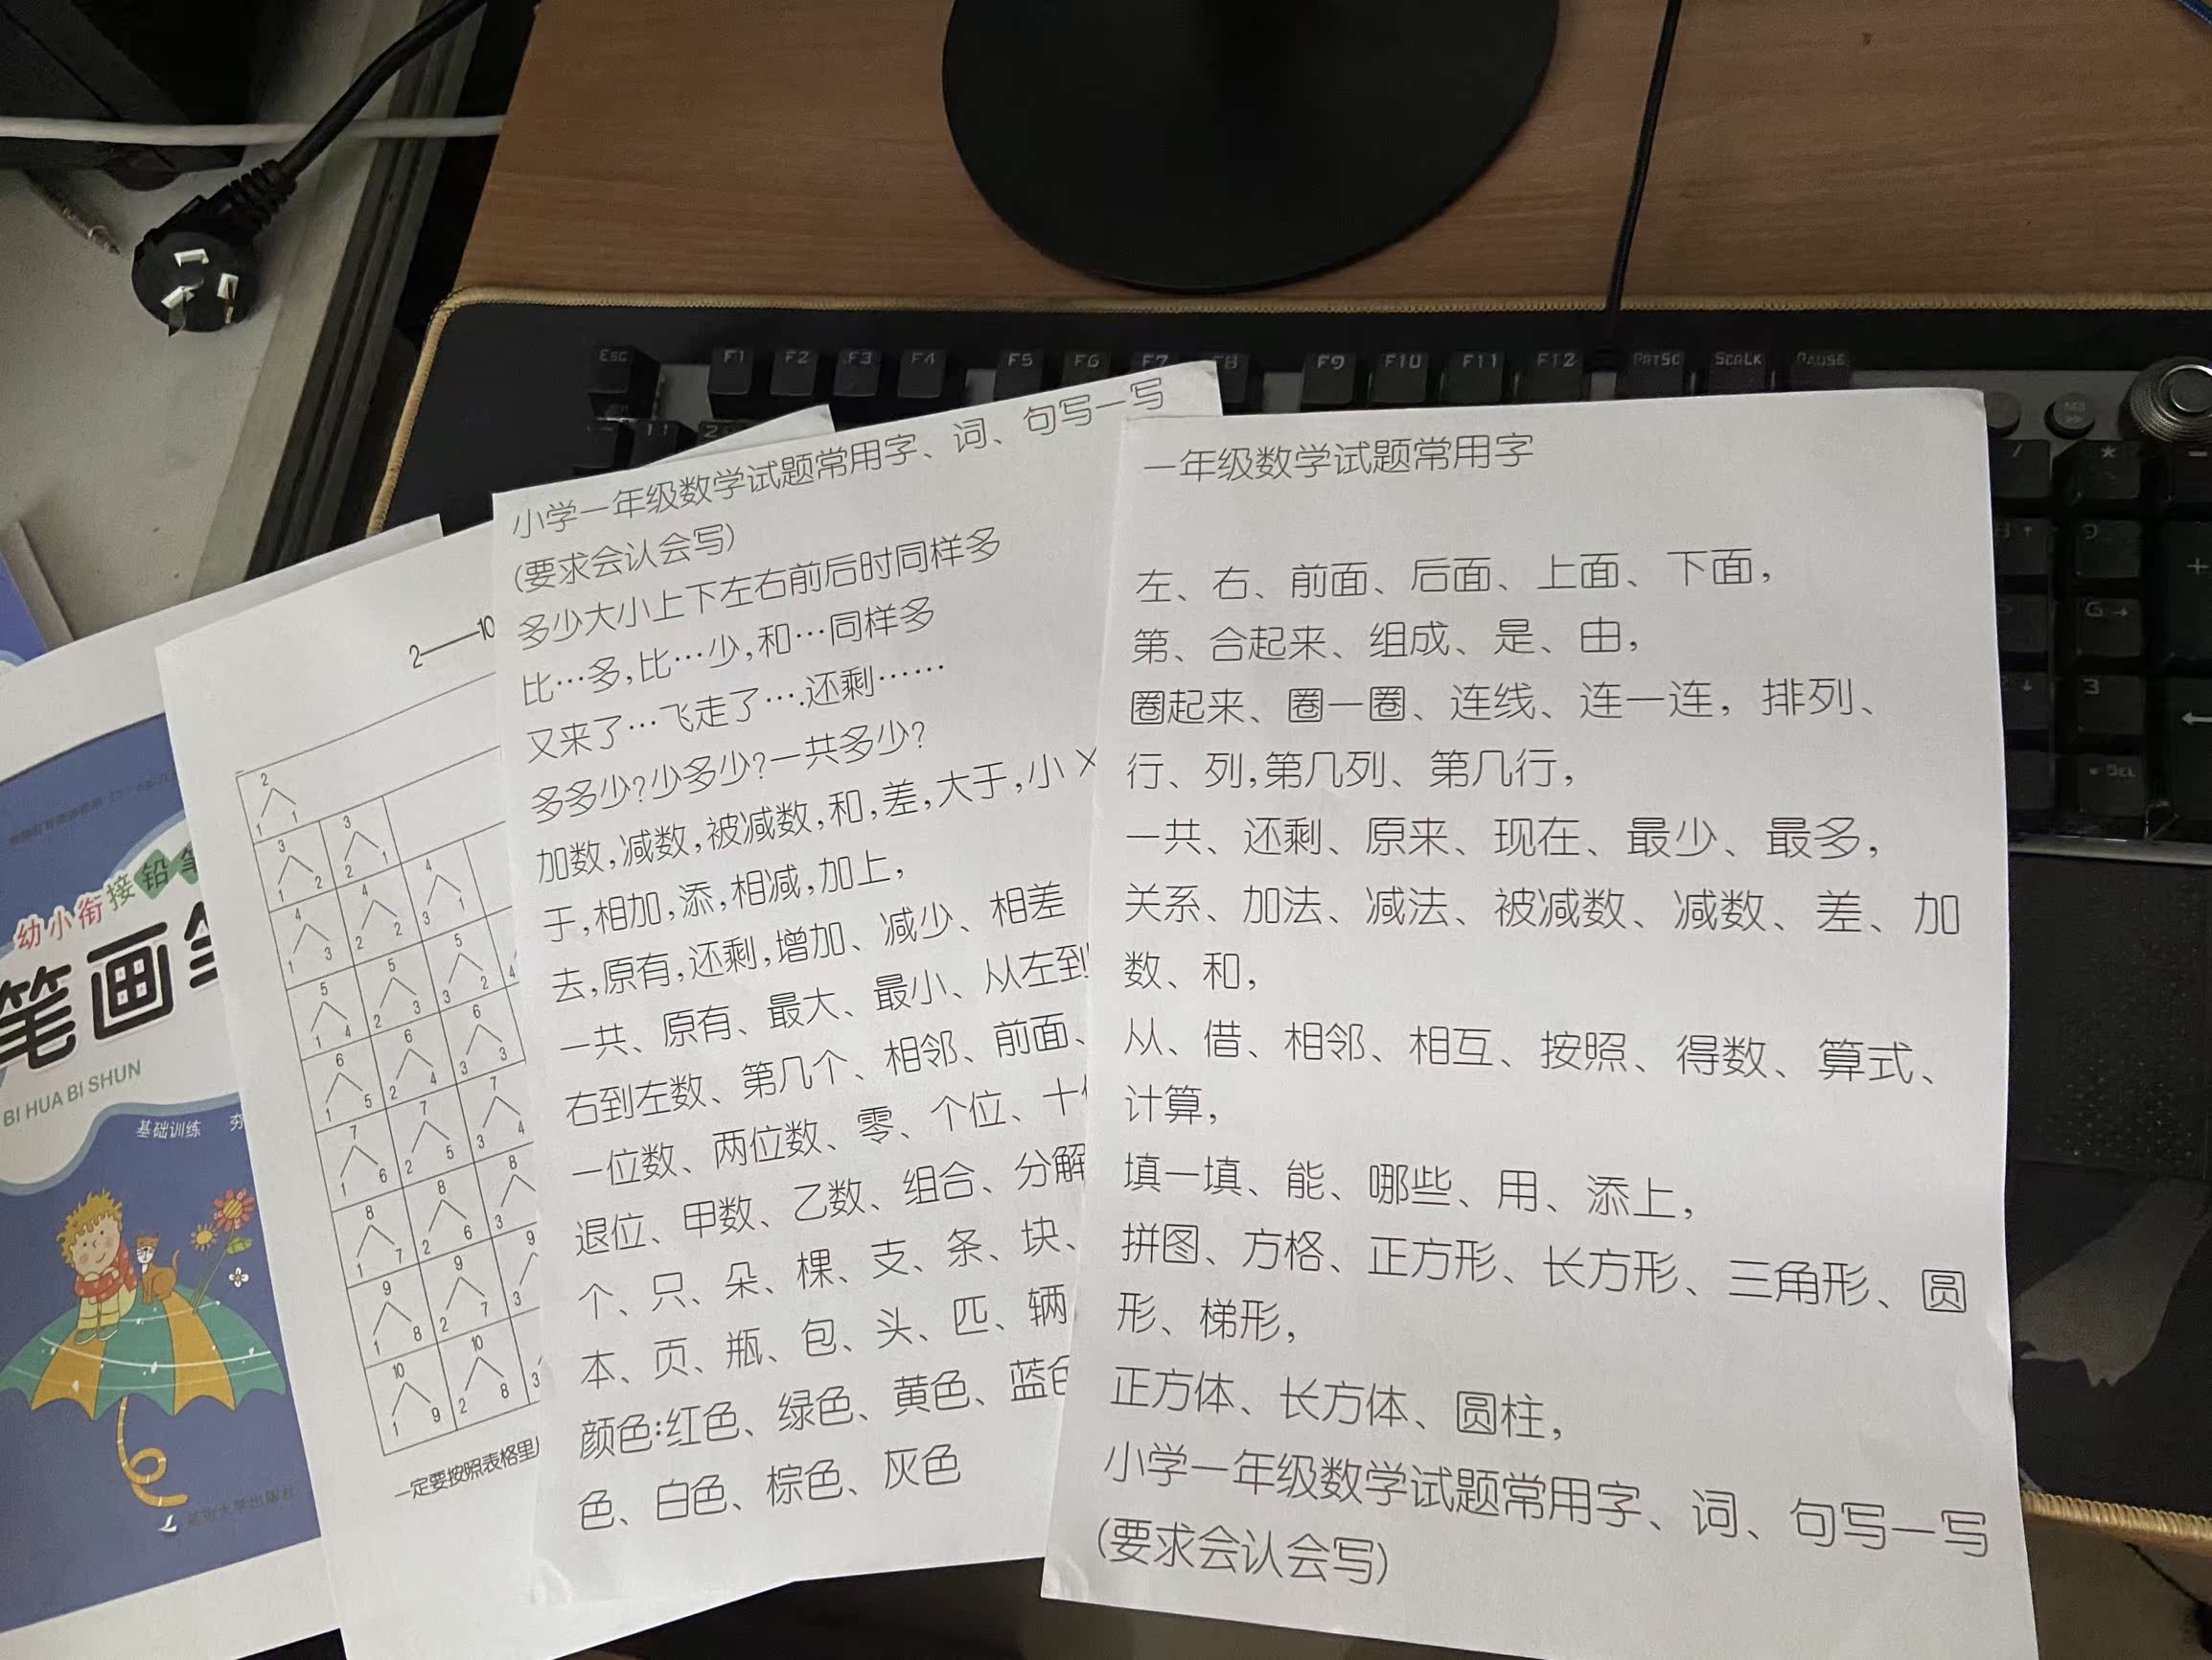 一年级数学试题常用字
左、右、前面、后面、上面、下面，
第、合起来、组成、是、由，
圈起来、圈一圈、连线、连一连，排列、
行、列,第几列、第几行，
一共、还剩、原来、现在、最少、最多，
关系、加法、减法、被减数、减数、差、加
数、和，
从、借、相邻、相互、按照、得数、算式、
计算，
填一填、能、哪些、用、添上，
拼图、方格、正方形、长方形、三角形、圆
形、梯形，
正方体、长方体、圆柱，
小学一年级数学试题常用字、词、句写一写
(要求会认会写)
小学一年级数学试题常用字、词、句写一写
(要求会认会写)
多少大小上下左右前后时同样多
比…多,比…少,和…同样多
又来了…飞走了….还剩……
多多少?少多少?一共多少?
加数,减数,被减数,和,差,大于,小
于,相加,添,相减,加上,
去,原有,还剩,增加、减少、相差
一共、原有、最大、最小、从左到
右到左数、第几个、相邻、前面、
一位数、两位数、零、个位、十
退位、甲数、乙数、组合、分解
个、只、朵、棵、支、条、块、
本、页、瓶、包、头、匹、辆
颜色:红色、绿色、黄色、蓝色
色、白色、棕色、灰色
2——10
2
1 1
3 3
1 2 2 1
4 4 4
1 3 2 2 3 1
5 5 5
1 4 2 3 3 2 4
6 6 6
1 5 2 4 3 3
7 7 7
1 6 2 5 3 4
8 8 8
1 7 2 6 3
9 9 9
1 8 2 7 3
10 10
1 9 2 8 3
一定要按照表格里
幼小衔接铅笔
笔画
BI HUA BI SHUN
基础训练
Esc F1 F2 F3 F4 F5 F6 F7 F8 F9 F10 F11 F12 PRTSC SCRLK PAUSE